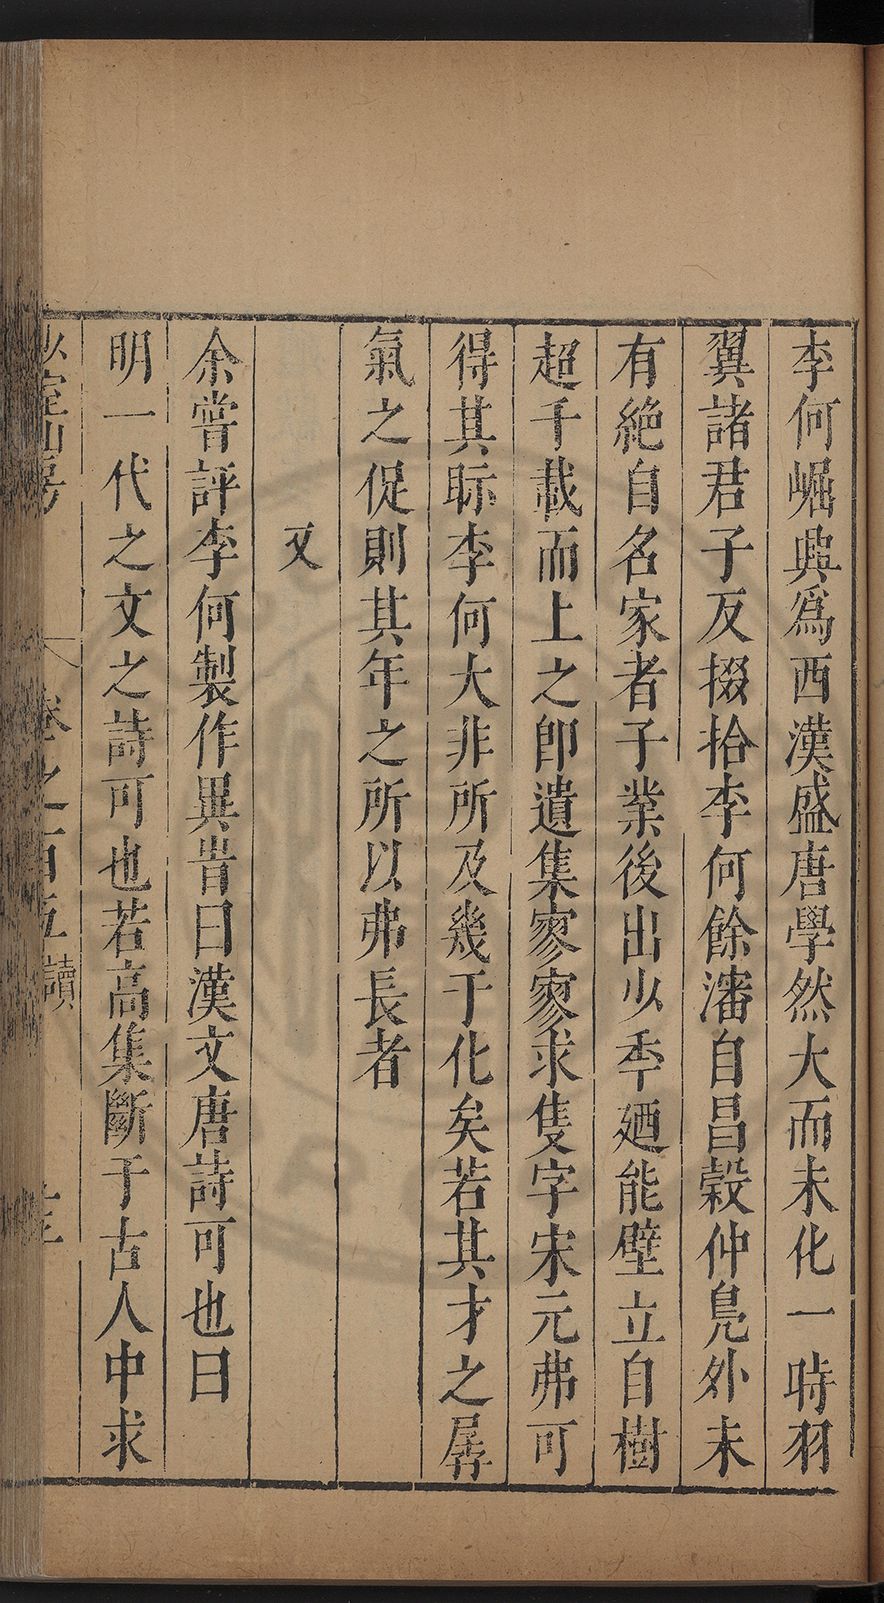 李何崛興爲西漢盛唐學然大而未化一時羽
翼諸君子反掇拾李何餘瀋自昌穀仲鳧外未
有絕自名家者子業後出少季廼能壁立自樹
超千載而上之卽遺集寥寥求隻字宋元弗可
得其眎李何大非所及幾于化矣若其才之孱
氣之促則其年之所以弗長者
又
余嘗評李何製作異昔曰漢文唐詩可也曰
明一代之文之詩可也若高集斷于古人中求
室山房
卷之一百五 讀